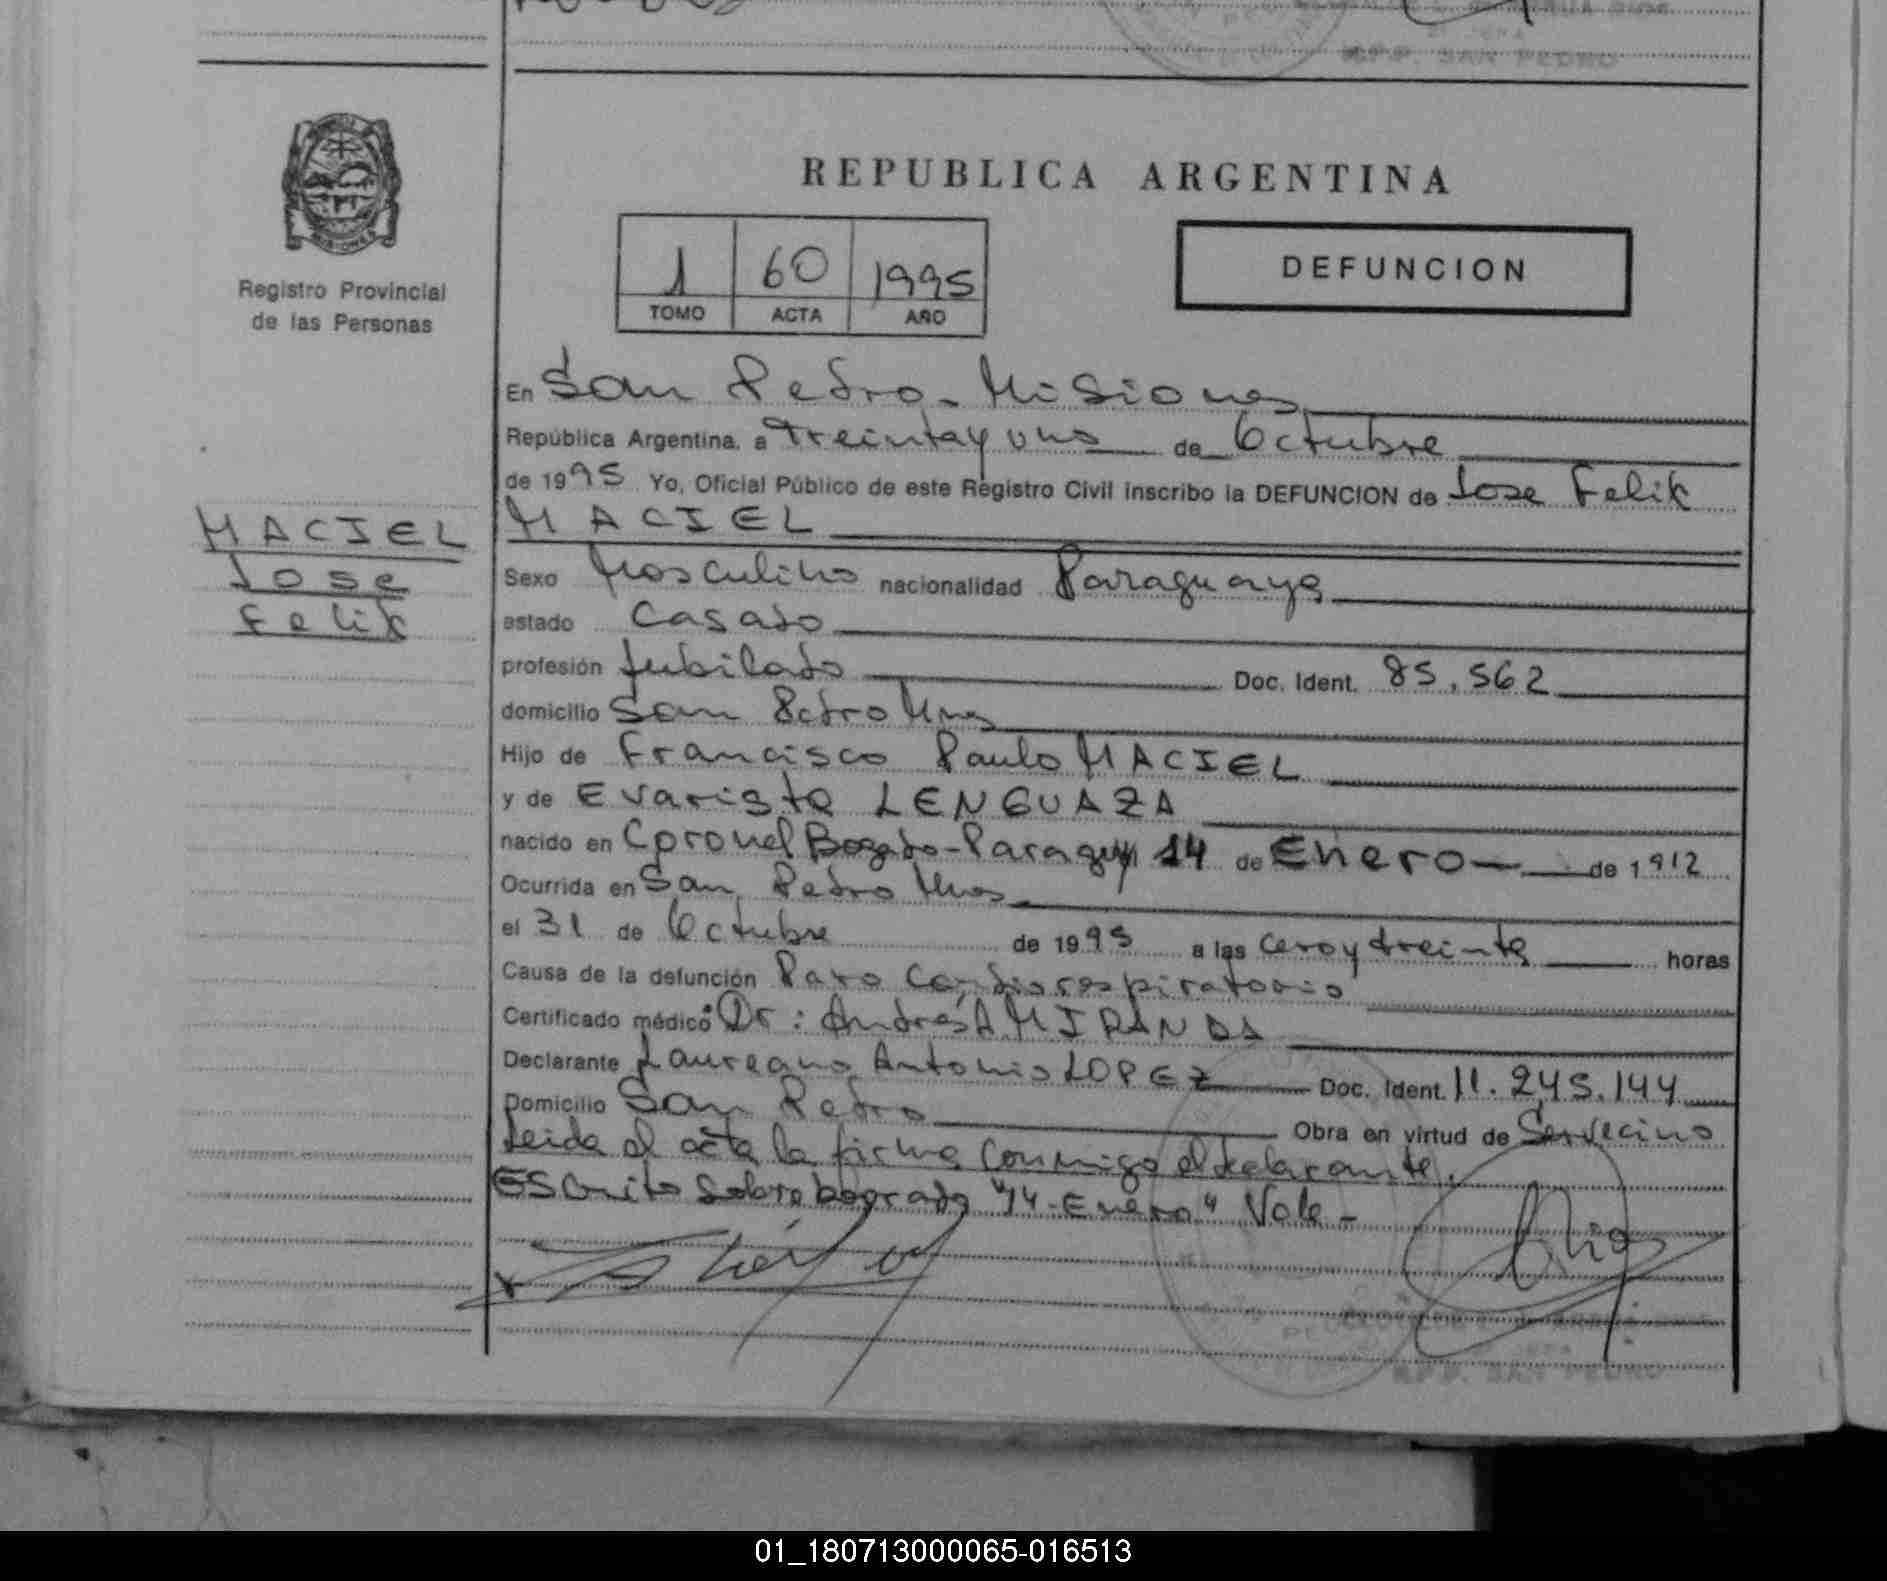 R.P.P. SAN PEDRO
REPUBLICA ARGENTINA
MISIONES
Registro Provincial
de las Personas
1 60 1995
TOMO ACTA AÑO
DEFUNCION
En San Pedro - Misiones
República Argentina, a treinta y uno de Octubre
de 1995 Yo, Oficial Público de este Registro Civil inscribo la DEFUNCION de Jose Felix
MACIEL
MACIEL
Jose
Felix
Sexo Masculino nacionalidad Paraguaya
estado Casado
profesión Jubilado Doc. Ident. 85.562
domicilio San Pedro Mnes
Hijo de Francisco Paulo MACIEL
y de Evarista LENGUAZA
nacido en Coronel Bogado - Paraguay 14 de Enero de 1912
Ocurrida en San Pedro Mnes
el 31 de Octubre de 1995 a las cero y treinta horas
Causa de la defunción Paro Cardiorespiratorio
Certificado médico Dr: Andres A MIRANDA
Declarante Laureano Antonio LOPEZ Doc. Ident. 11.245.144
Domicilio San Pedro Obra en virtud de Ser vecino
Leida el acta la firma conmigo el declarante.
Escrito sobre borrado "14-Enero" Vale -
R.P.P. SAN PEDRO
01_180713000065-016513